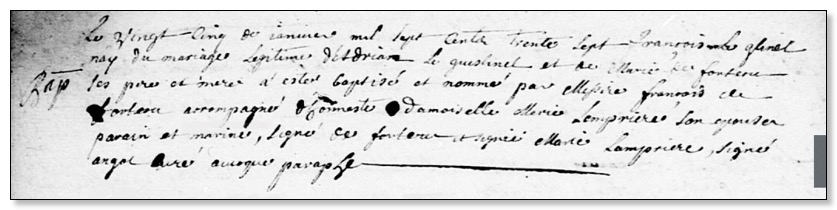 Le vingt cinq de janvier mil sept cents trente sept François le quinel
nay du mariage legitime d'Adrian le quesnel et de Marie de fontenu
Bap ses pere et mere a esté baptisé et nommé par Messire francois de
fontenu accompagné d'honneste damoiselle Marie Lempriere son epouse
parain et marine, signé de fontenu et signée Marie Lampriere, signé
angot curé avecque paraphe